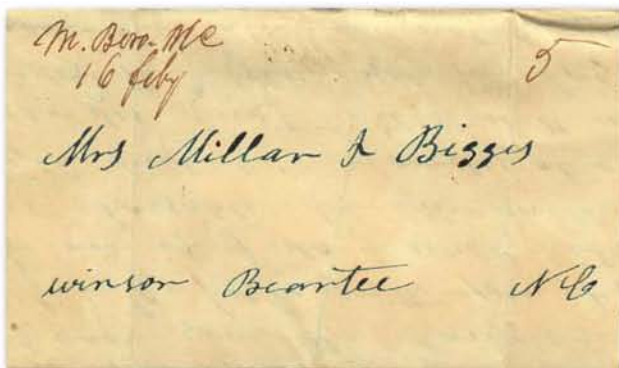 M. Boro. NC
16 feby
5
Mrs Millar & Bigges
winson Beartee NC